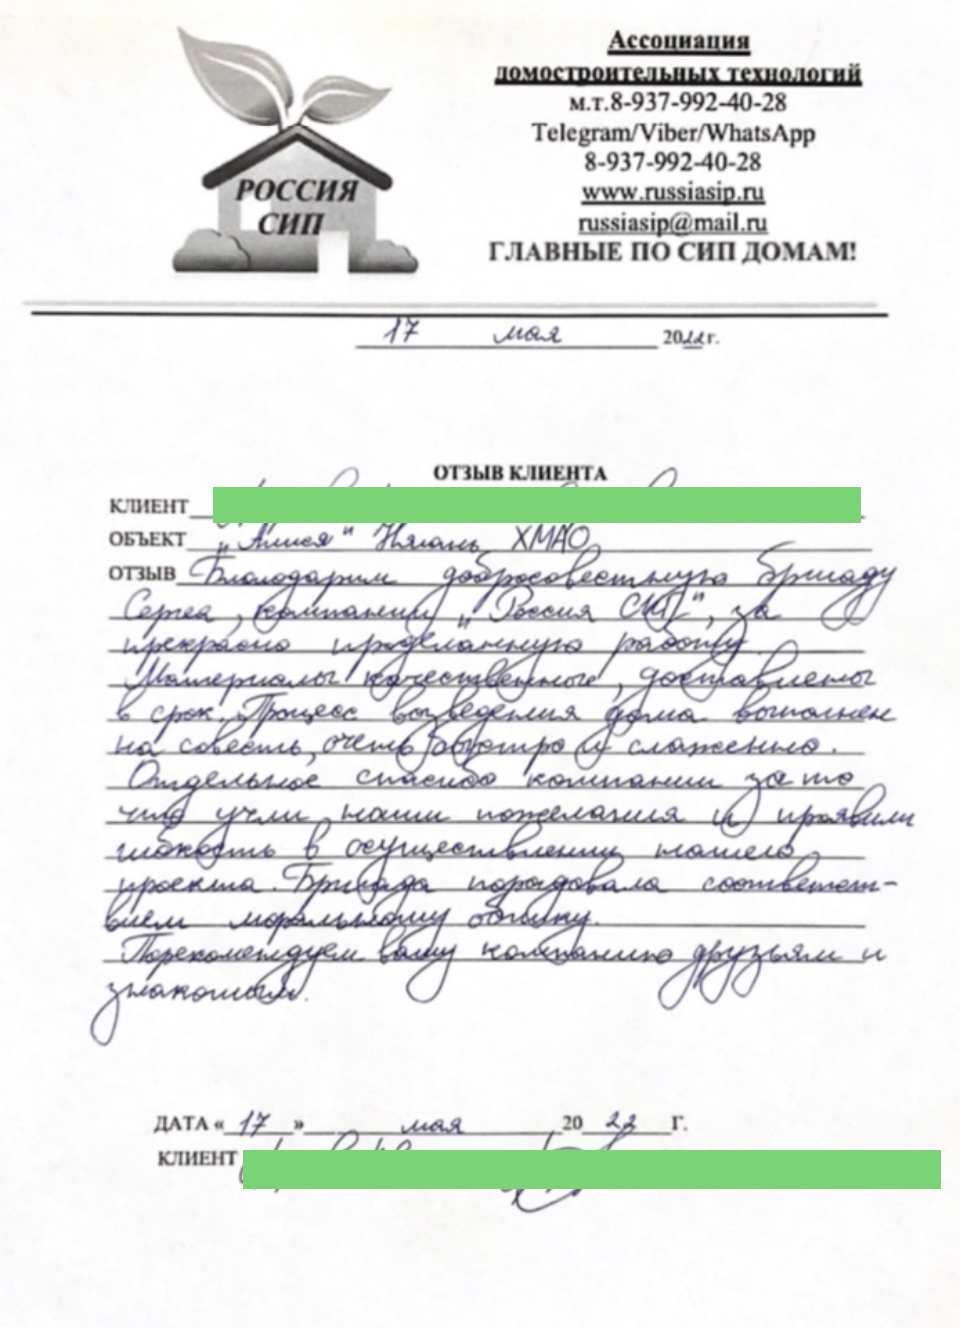 РОССИЯ
СИП
Ассоциация
домостроительных технологий
м.т.8-937-992-40-28
Telegram/Viber/WhatsApp
8-937-992-40-28
www.russiasip.ru
russiasip@mail.ru
ГЛАВНЫЕ ПО СИП ДОМАМ!
17 мая 2022 г.
ОТЗЫВ КЛИЕНТА
КЛИЕНТ
ОБЪЕКТ „Алиса" Нягань ХМАО
ОТЗЫВ Благодарим добросовестную бригаду
Сергея, компании „Россия СИП", за
прекрасно проделанную работу.
Материалы качественные, доставлены
в срок. Процесс возведения дома выполнен
на совесть, очень быстро и слаженно.
Отдельное спасибо компании за то
что учли наши пожелания и проявили
гибкость в осуществлении нашего
проекта. Бригада порадовала соответст-
вием моральному облику.
Порекомендуем вашу компанию друзьям и
знакомым.
ДАТА « 17 » мая 20 22 Г.
КЛИЕНТ